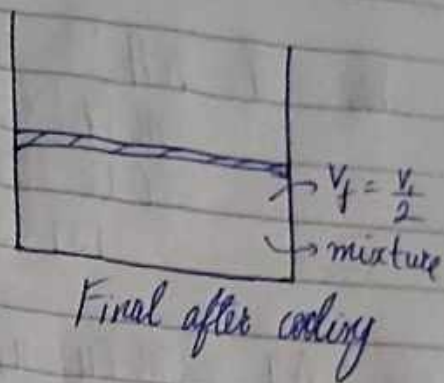 V_f = V_1/2
mixture
Final after cooling